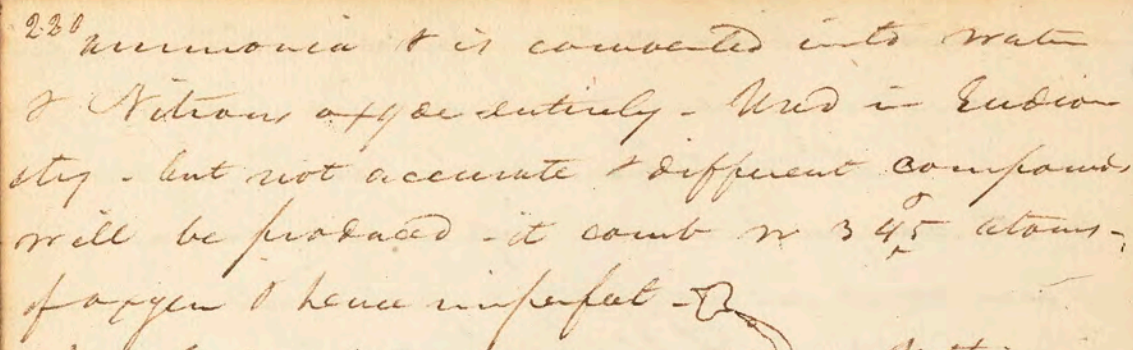 220 ammonia & is converted into water
& Nitrous oxyde entirely - Used in Eudiom
etry - but not accurate & different compounds
will be produced - it comb w 3 4 5 atoms -
of oxygen & hence imperfect -